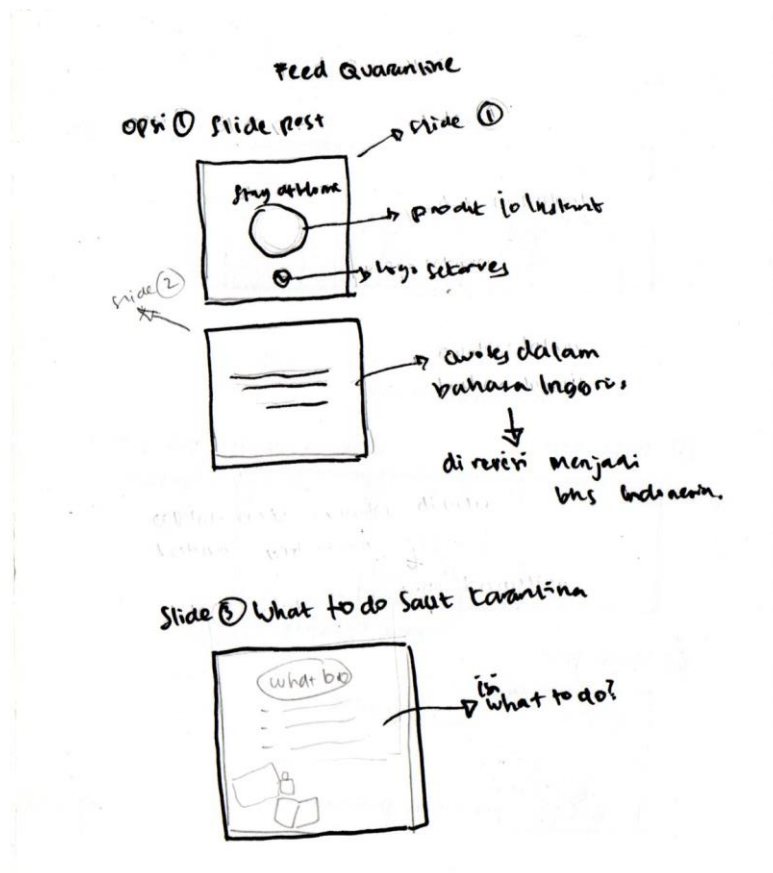 Feed Quarantine
Opsi ① Slide post
slide ①
Stay at Home
produk jo Instant
logo
slide ②
quotes dalam
bahasa Inggris
di revisi menjadi
bhs Indonesia.
Slide ③ What to do Saat karantina
what
isi
what to do?